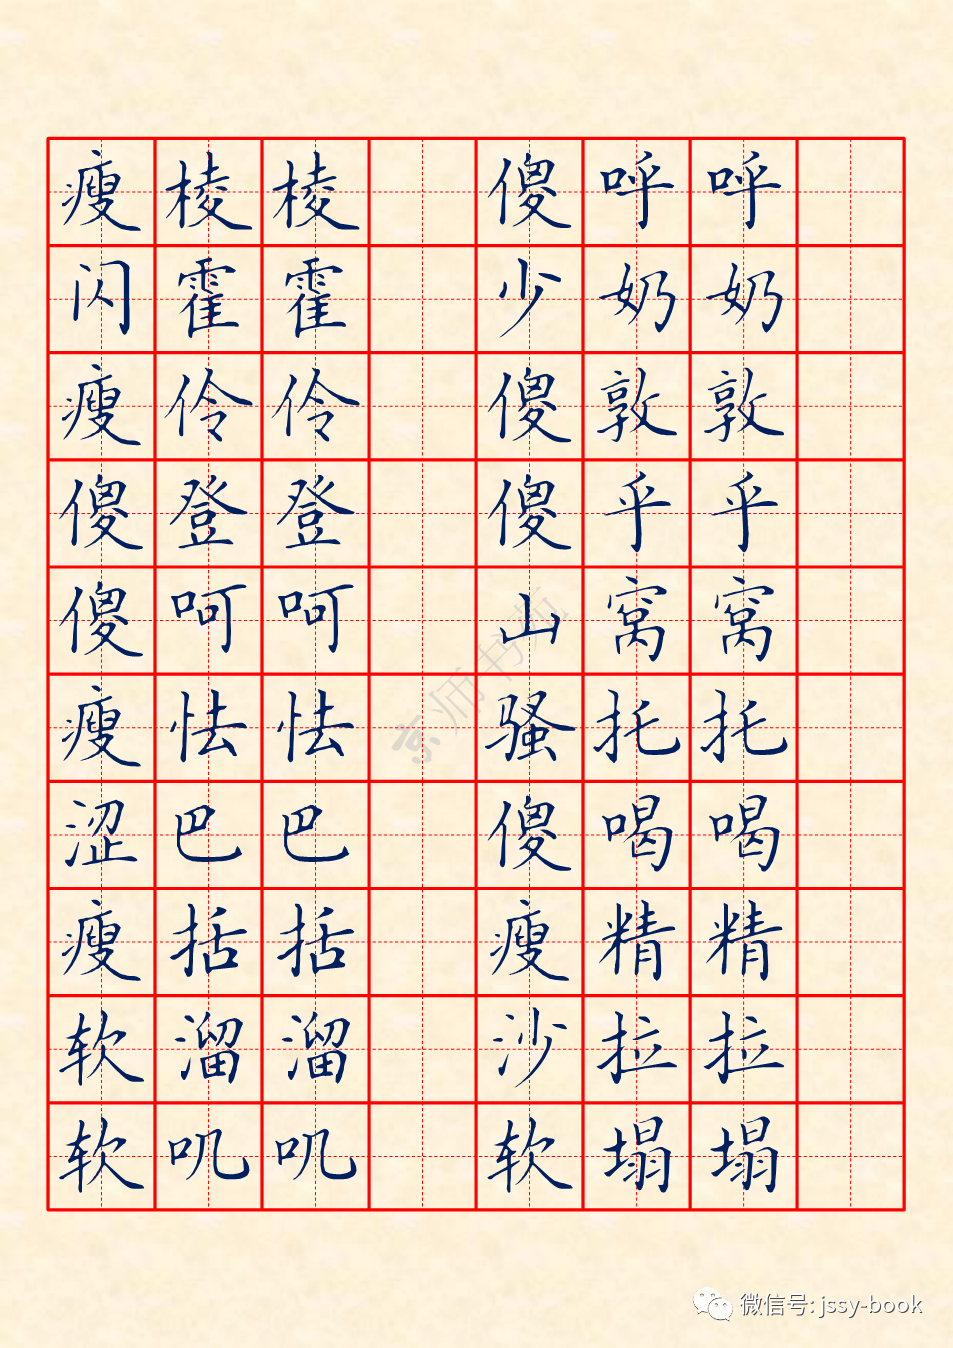 瘦棱棱 傻呼呼
闪霍霍 少奶奶
瘦伶伶 傻敦敦
傻登登 傻乎乎
傻呵呵 山窝窝
瘦怯怯 骚托托
涩巴巴 傻喝喝
瘦括括 瘦精精
软溜溜 沙拉拉
软叽叽 软塌塌
京师书苑
微信号: jssy-book